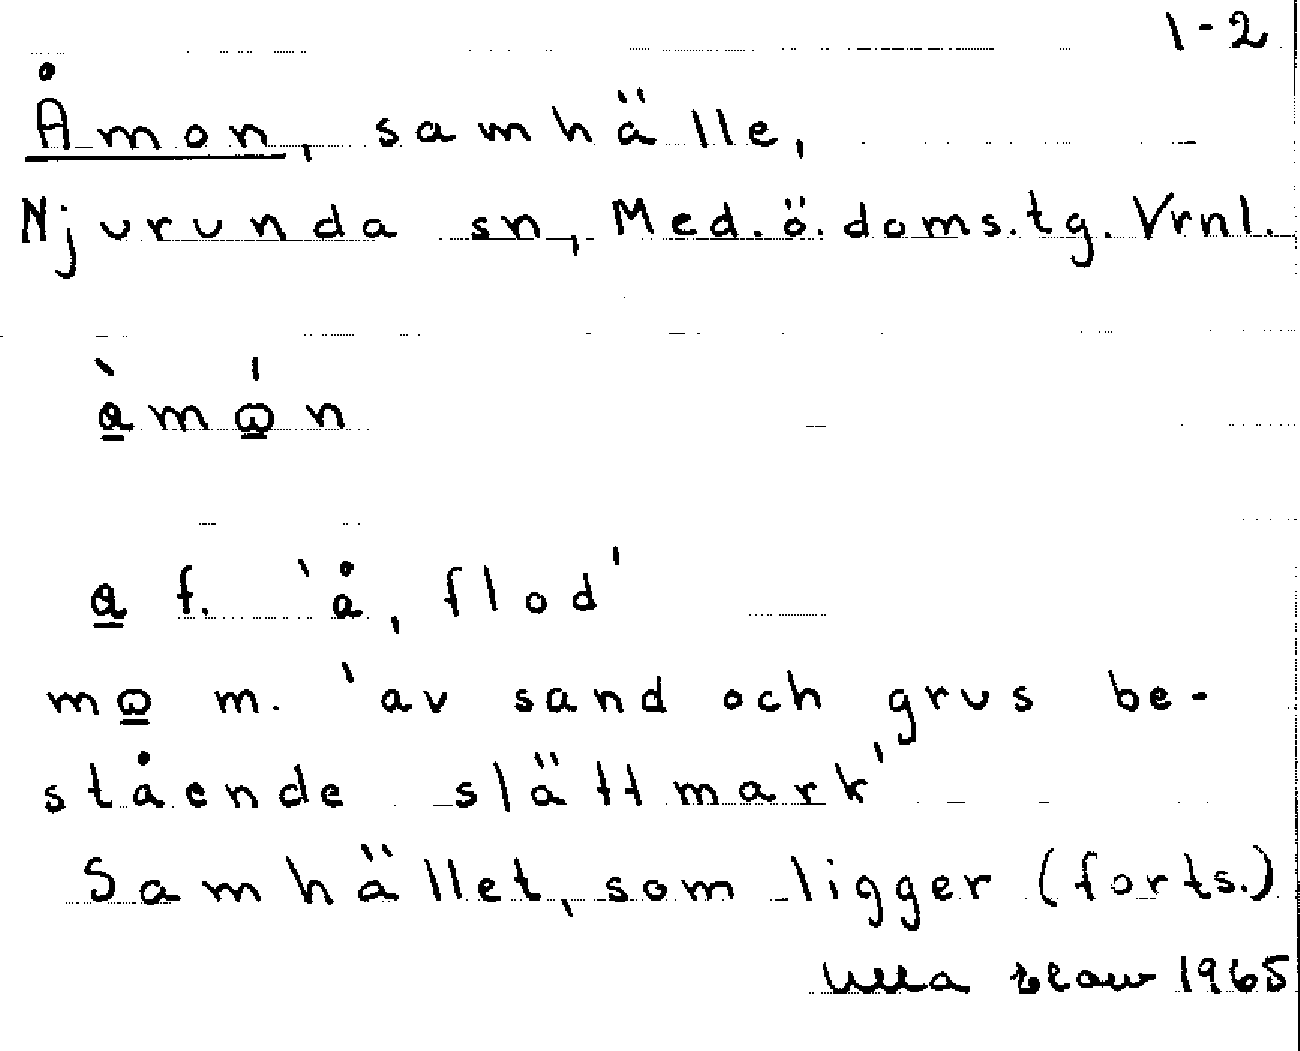 1-2
Åmon, samhälle,
Njurunda sn, Med.ö.doms.tg. Vrnl.
à̲mώ̲n
a̲ f. 'å, flod'
mω̲ m. 'av sand och grus be-
stående slättmark'
Samhället, som ligger (forts.)
Ulla 1965